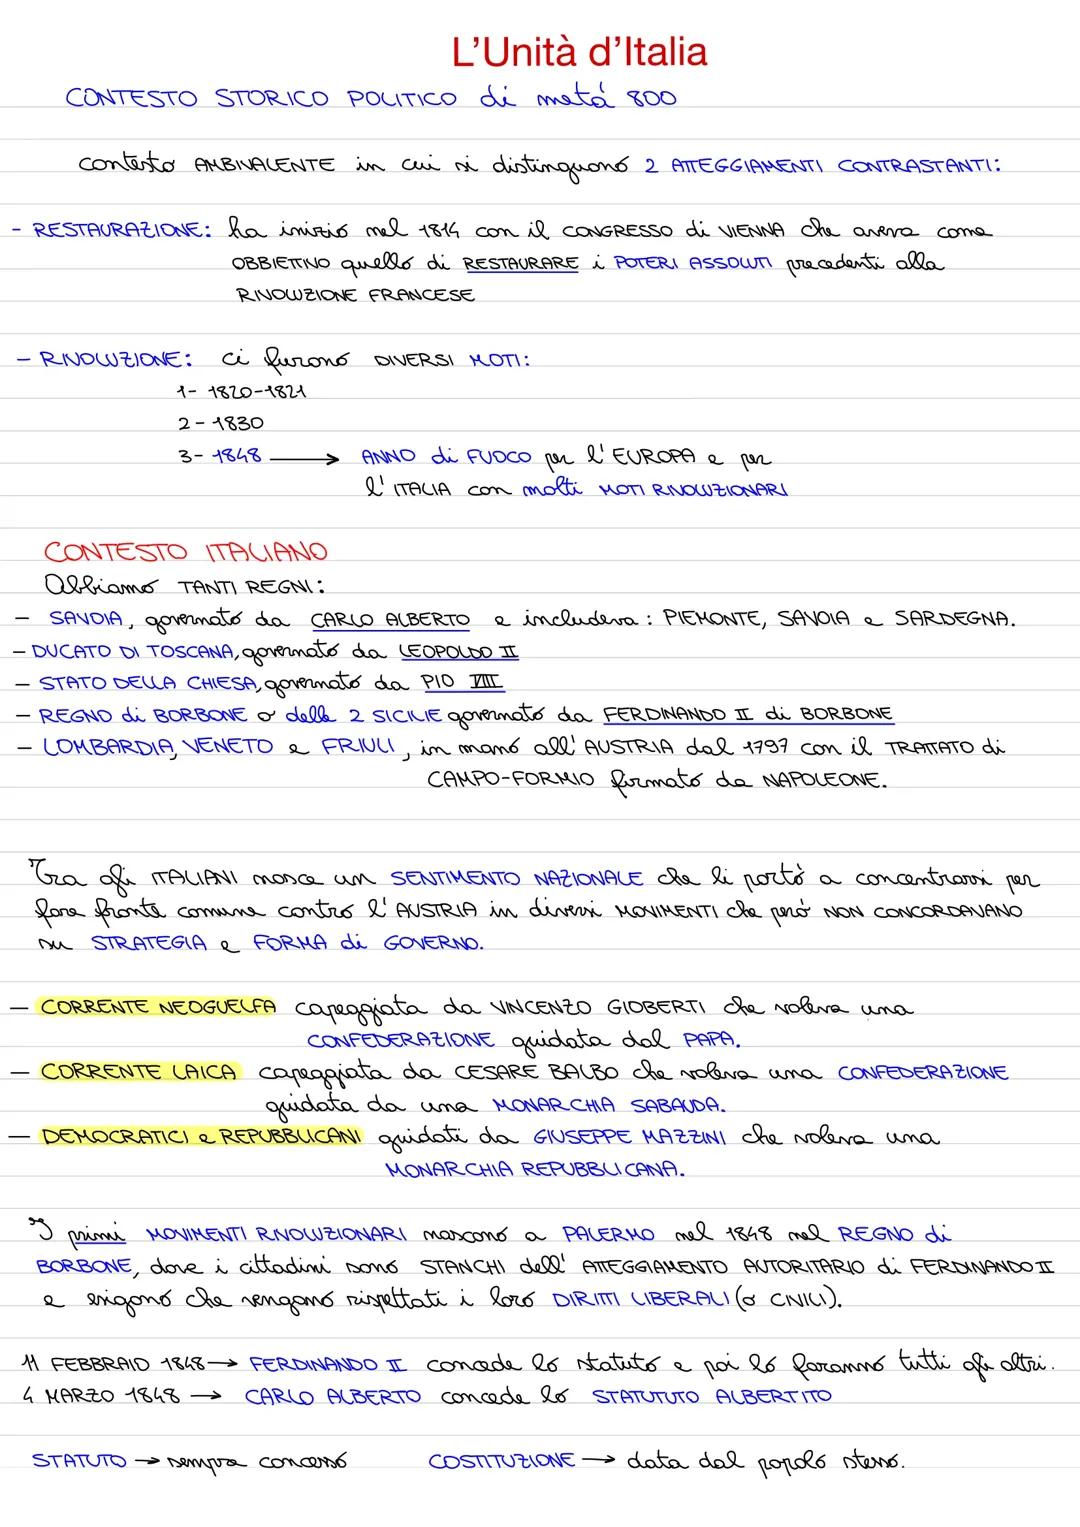 L'Unità d'Italia
CONTESTO STORICO POLITICO di metá 800
contesto AMBIVALENTE in cui si distinguono 2 ATTEGGIAMENTI CONTRASTANTI:
- RESTAURAZIONE: ha inizio nel 1814 con il CONGRESSO di VIENNA che aveva come
OBBIETTINO quello di RESTAURARE i POTERI ASSOLUTI precedenti alla
RIVOLUZIONE FRANCESE
- RIVOLUZIONE: ci furono DIVERSI MOTI:
1- 1820-1821
2- 1830
3- 1848 → ANNO di FUOCO per l'EUROPA e per
l'ITALIA con molti MOTI RIVOLUZIONARI
CONTESTO ITALIANO
Abbiamo TANTI REGNI:
- SAVOIA, governato da CARLO ALBERTO e includeva: PIEMONTE, SAVOIA e SARDEGNA.
- DUCATO DI TOSCANA, governato da LEOPOLDO II
- STATO DELLA CHIESA, governato da PIO VIII
- REGNO di BORBONE o delle 2 SICILIE governato da FERDINANDO II di BORBONE
- LOMBARDIA, VENETO e FRIULI, in mano all'AUSTRIA dal 1797 con il TRATTATO di
CAMPO-FORMIO firmato da NAPOLEONE.
Tra gli ITALIANI nasce un SENTIMENTO NAZIONALE che li portò a concentrarsi per
fare fronte comune contro l'AUSTRIA in diversi MOVIMENTI che peró NON CONCORDAVANO
su STRATEGIA e FORMA di GOVERNO.
- CORRENTE NEOGUELFA capeggiata da VINCENZO GIOBERTI che voleva una
CONFEDERAZIONE guidata dal PAPA.
- CORRENTE LAICA capeggiata da CESARE BALBO che voleva una CONFEDERAZIONE
guidata da una MONARCHIA SABAUDA.
- DEMOCRATICI e REPUBBLICANI guidati da GIUSEPPE MAZZINI che voleva una
MONARCHIA REPUBBLICANA.
I primi MOVIMENTI RIVOLUZIONARI nascono a PALERMO nel 1848 nel REGNO di
BORBONE, dove i cittadini sono STANCHI dell' ATTEGGIAMENTO AUTORITARIO di FERDINANDO II
e esigono che vengano rispettati i loro DIRITTI LIBERALI (o CIVILI).
11 FEBBRAIO 1848 → FERDINANDO II concede lo statuto e poi lo faranno tutti gli altri.
4 MARZO 1848 → CARLO ALBERTO concede lo STATUTUTO ALBERTITO
STATUTO → sempre concesso COSTITUZIONE → data dal popolo stesso.